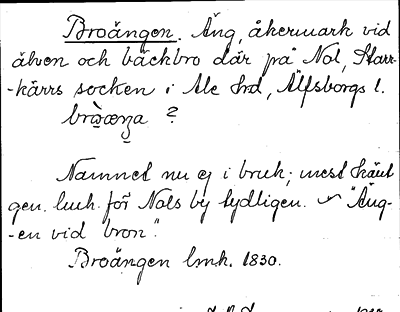 Broängen. Äng, åkermark vid
älven och bäckbro där på Nol, Starr-
-kärrs socken i Ale hrd, Älfsborgs l.
?
Namnet nu ej i bruk; mest känt
gen. lmk. för Nols by tydligen. "Äng-
-en vid bron".
Broängen lmk. 1830.